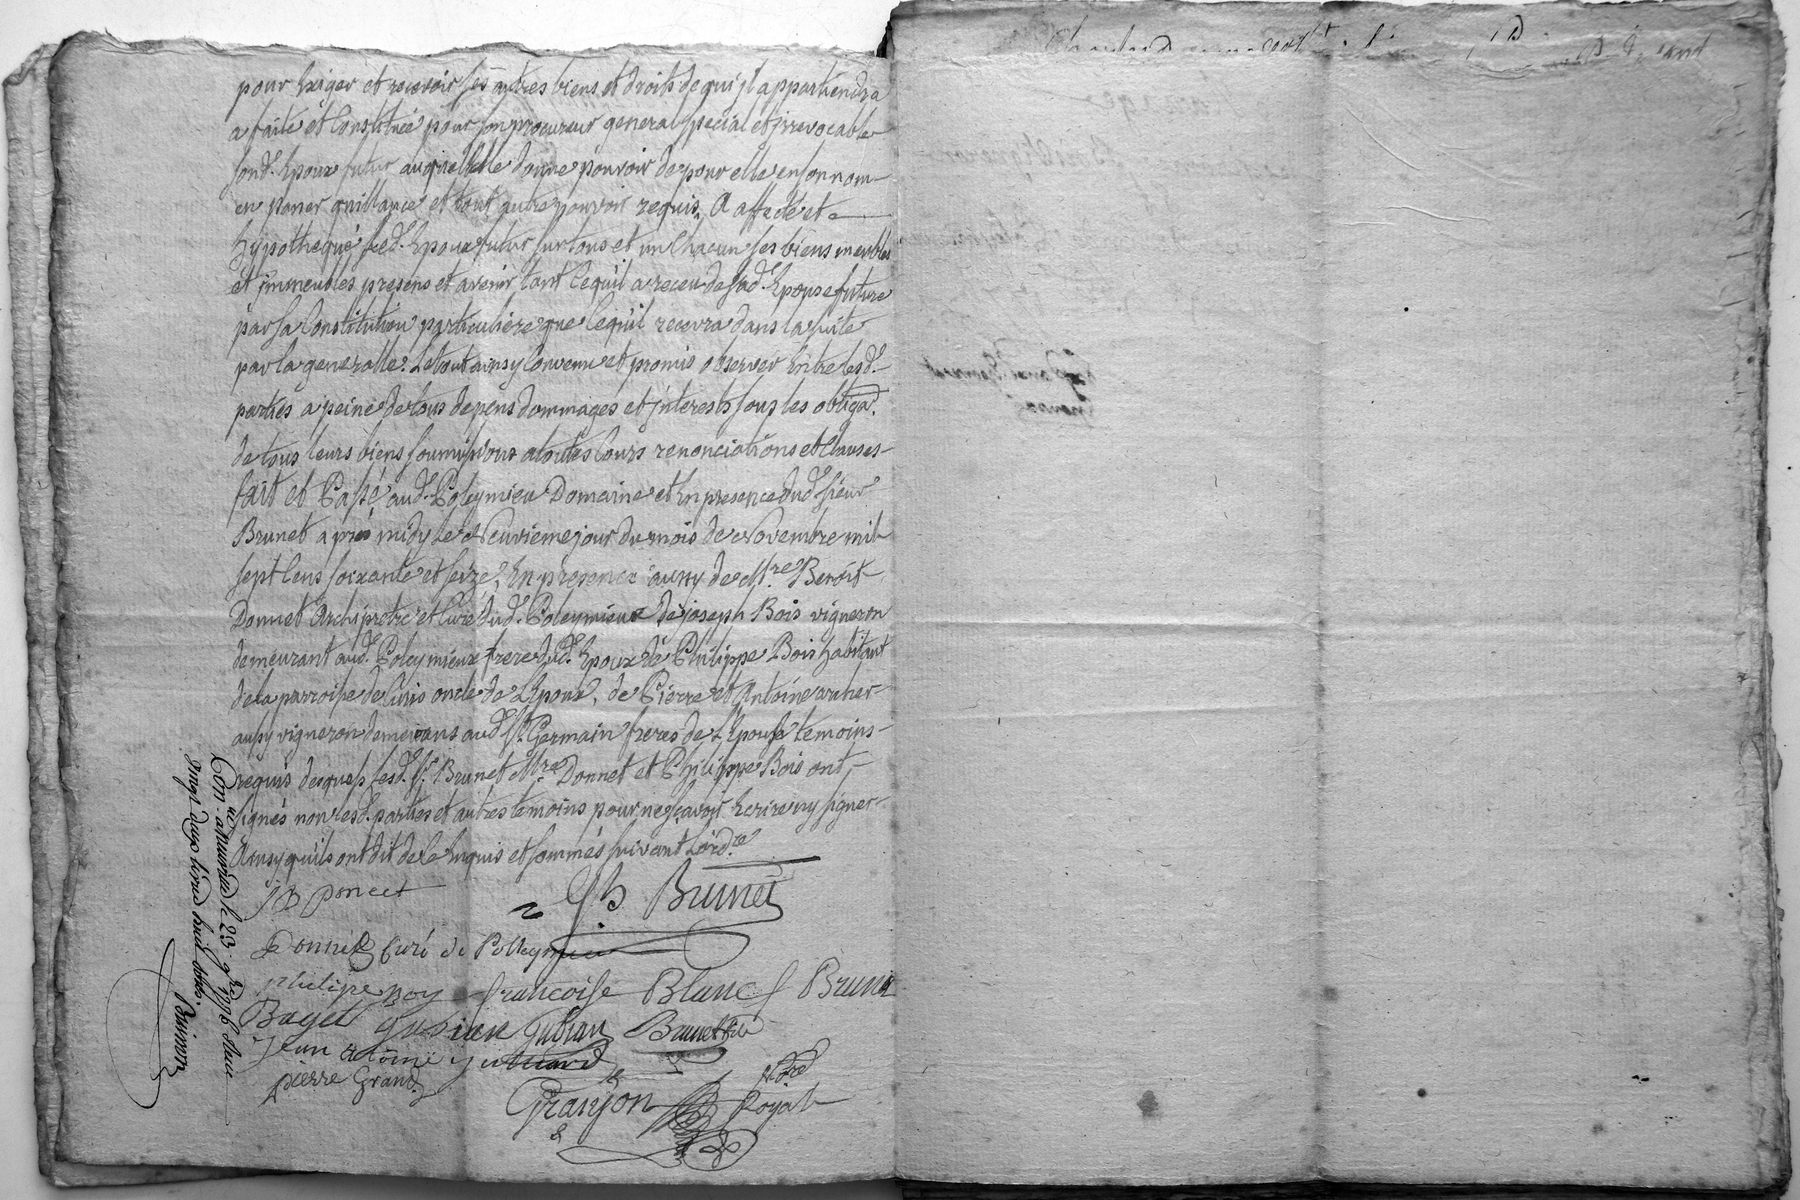 pour Exiger et recevoir ses autres biens et droits de qui jl appartiendra
a faite et Constituée pour son procureur general special et jrrevocable
sond. Epoux futur auquel elle donne pouvoir de pour elle en son nom
en passer quittance et tout autre pouvoir requis, A affecté et
hypothequé led. Epoux futur sur tous et un Chacun ses biens meubles
et jmmeubles presens et avenir tant Cequil a receu de sad. Epouse future
par sa Constitution particuliere que Cequil recevra dans la suite
par la generalle. Letout ainsy Convenu et promis observer Entre lesd.
parties a peine de tous depens dommages et jnterests sous les obligaõn.
de tous leurs biens soumissions a toutes Cours renonciations et Clauses
fait et Passé aud. Poleymieu Domaine et En presence dud. sieur
Brunet apres midy Le Neuvieme jour du mois de Novembre mil
sept Cens soixante et seize, En presence aussy de Mtre Benoit
Donnet Archipretre et Curé dud. Poleymieux de joseph Bois vigneron
demeurant aud. Poleymieux frere dud. Epoux de Philippe Bois habitant
de la parroisse de Curis oncle de L'Epoux, de Pierre et Antoine archer
aussy vigneron demeurans aud. St. Germain freres de L'Epouse temoins
requis desquels lesd. Sr. Brunet Mtre Donnet et Philippe Bois ont
signés non lesd. parties et autres temoins pour ne sçavoir Ecrire ny signer
Ainsy qu'ils ont dit de ce Enquis et sommés suivant L'ord.ce
J B poncet
Ch Brunet
Donnet Curé de Polleymieu
philipe Boy françoise Blanc f Brunet
Baget Gubian Gubian Brunet fils
Jean antoine
pierre Grand
Granjon
No.re
Royal
Con.lé a neuville le 23 9bre 1776 Reçu
vingt deux livres huit sols.